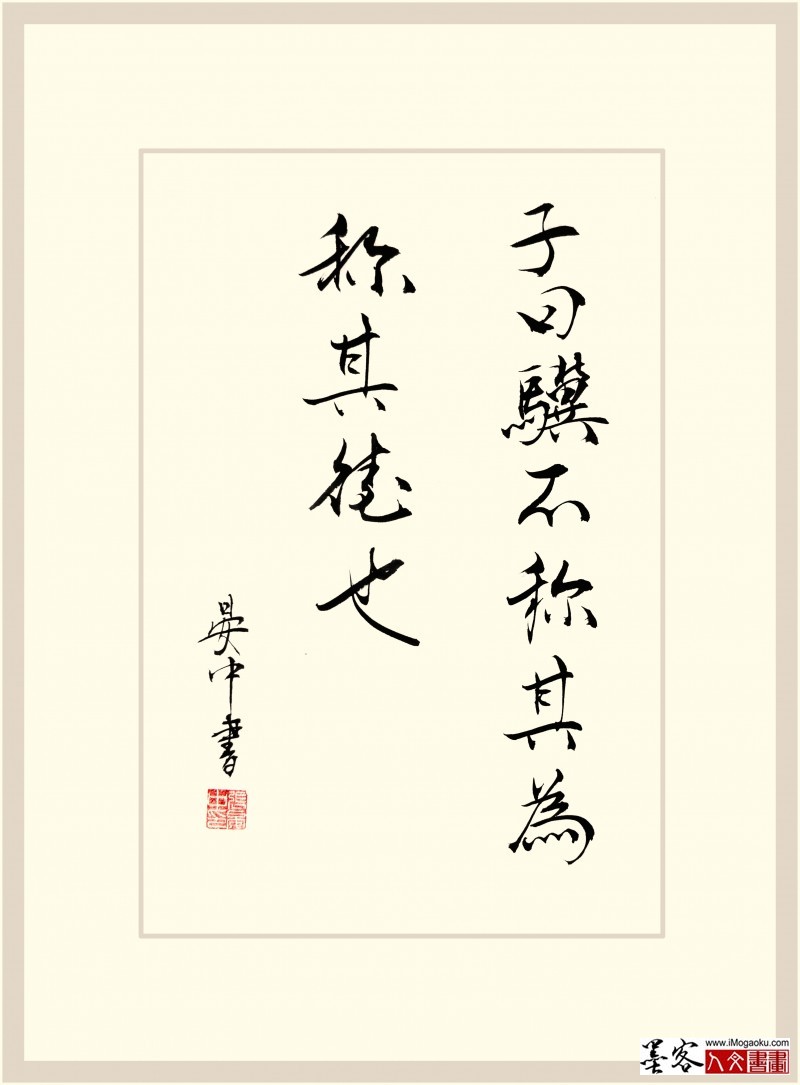 子曰驥不称其為
称其徳也
晏中書
墨客
www.iMogaoku.com
人文書畫